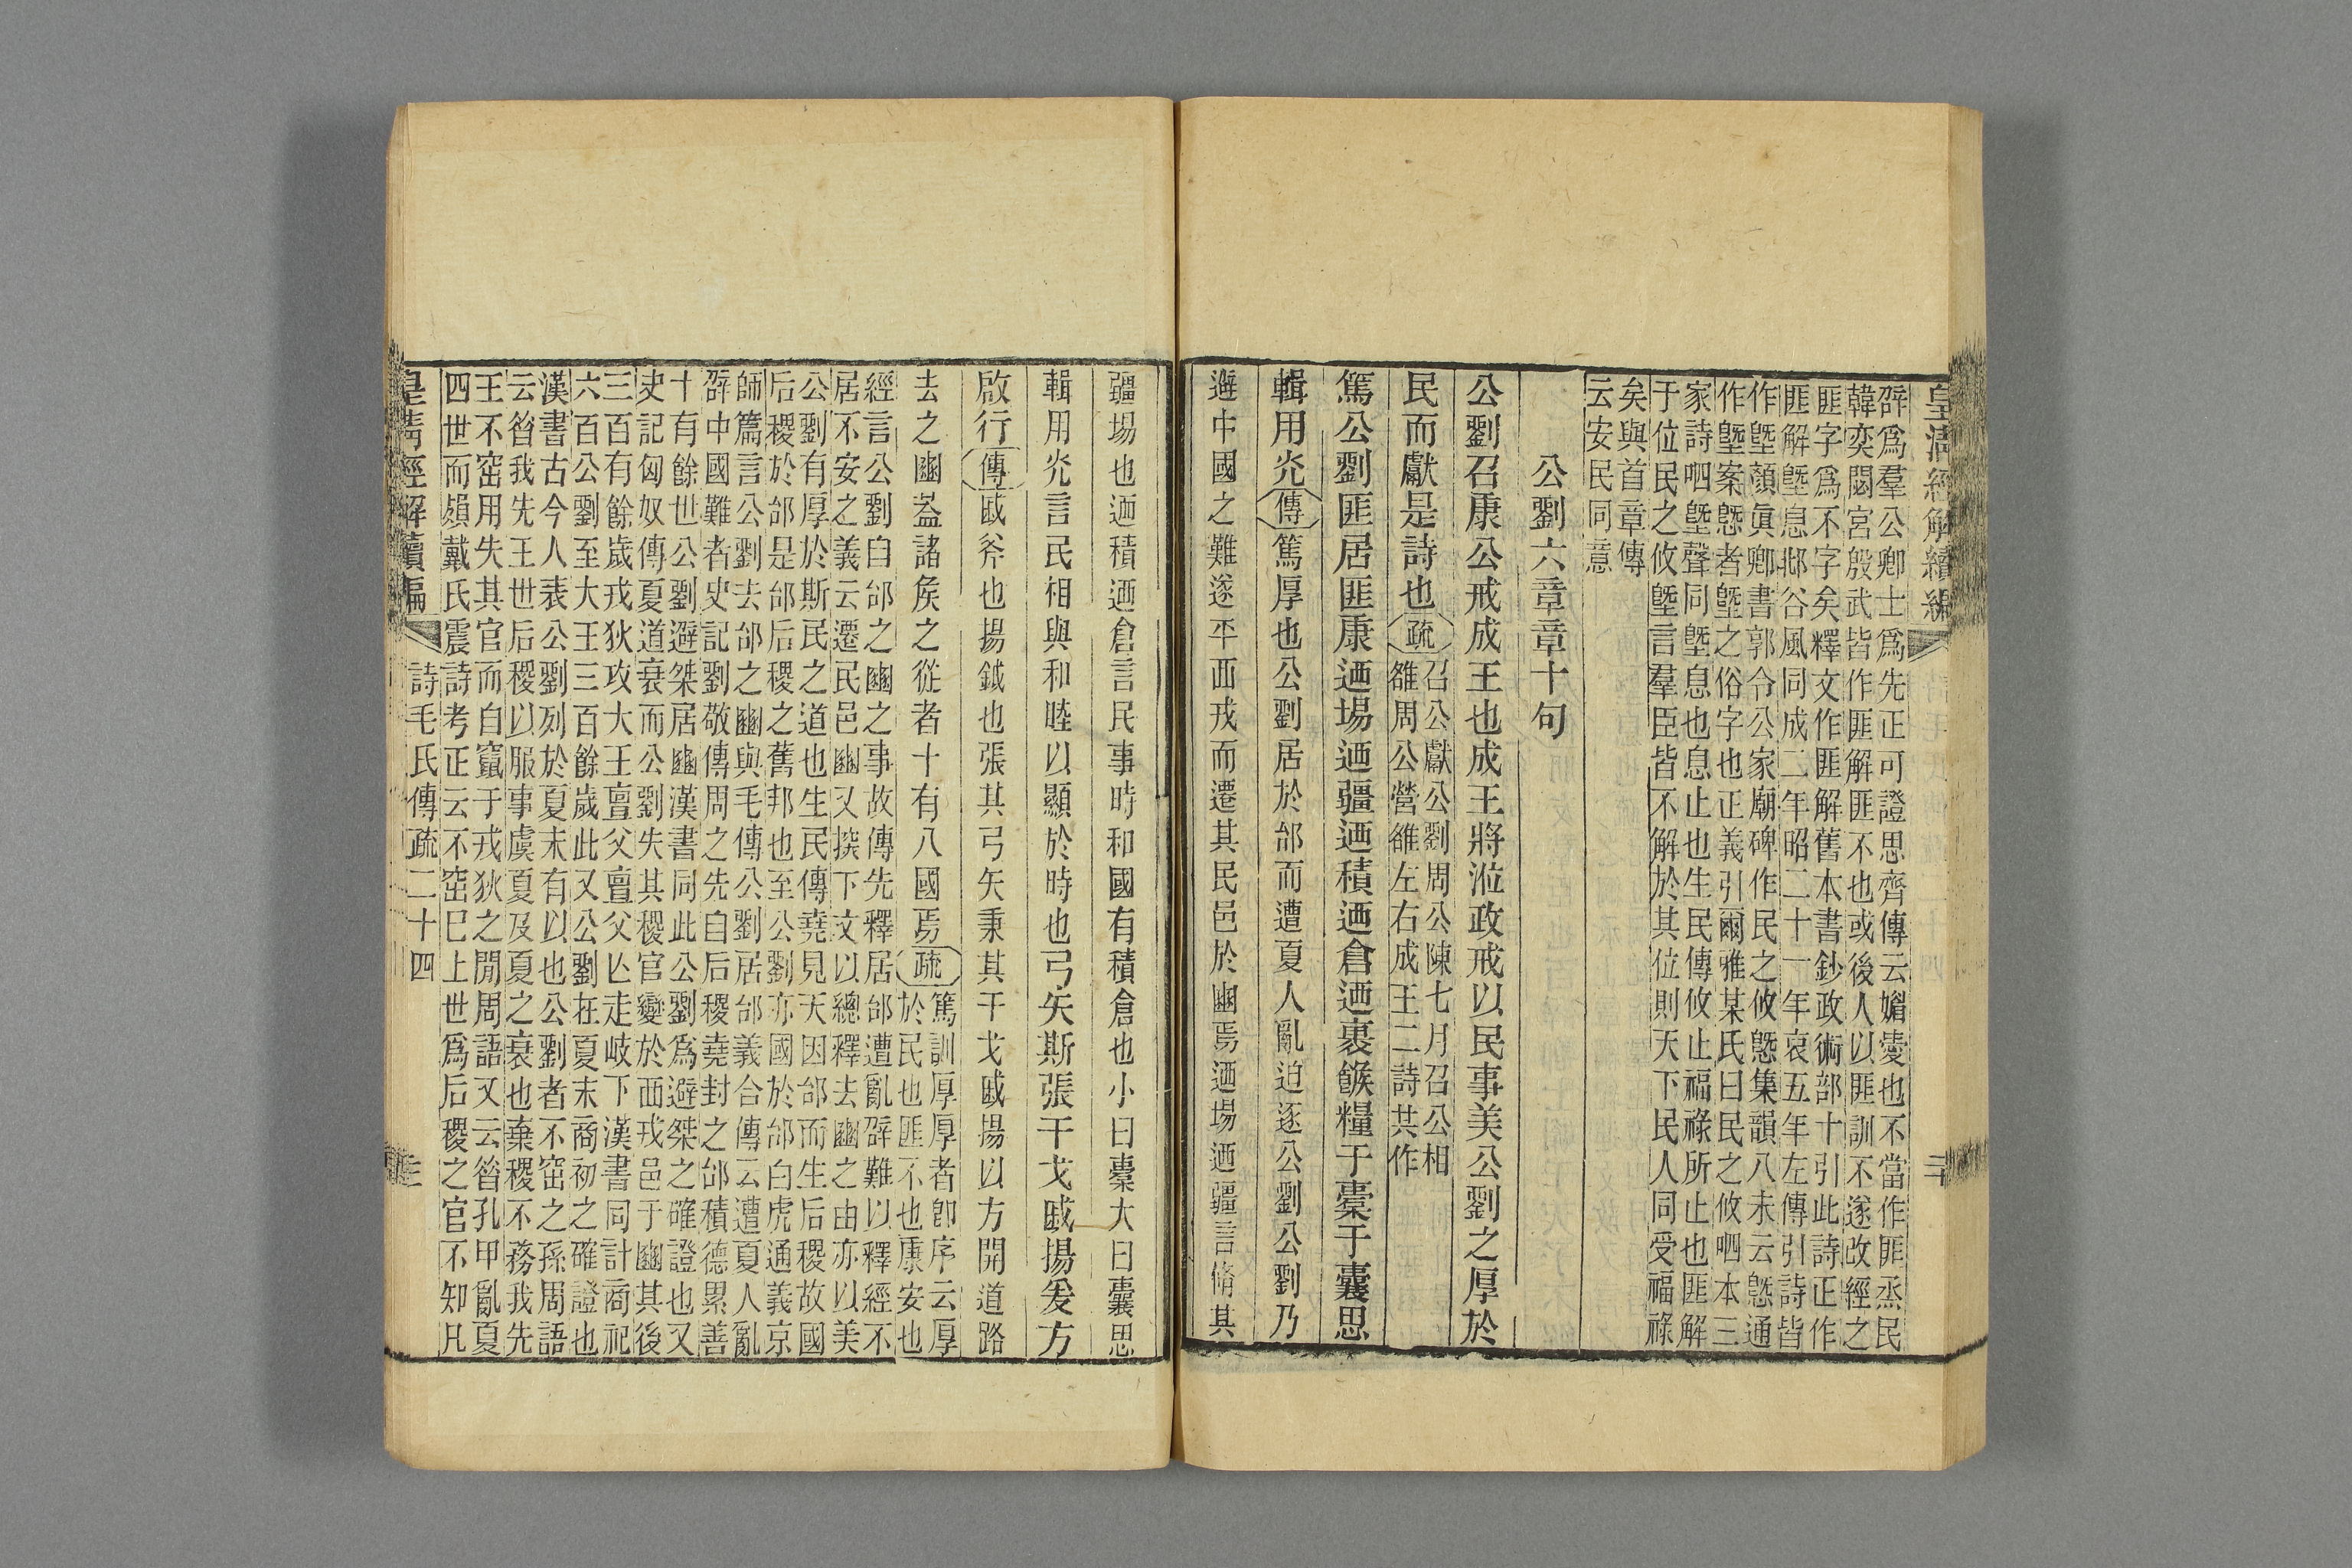 皇清經解續編
辟爲羣公卿士爲先正可證思齊傳云媚愛也不當作匪烝民
韓奕閟宮殷武皆作匪解匪不也或後人以匪訓不遂改經之
匪字爲不字矣釋文作匪解舊本書鈔政術部十引此詩正作
匪解墍息邶谷風同成二年昭二十一年哀五年左傳引詩皆
作墍顏眞卿書郭令公家廟碑作民之攸墍集韻八未云墍通
作墍案墍者墍之俗字也正義引爾雅某氏曰民之攸呬本三
家詩呬墍聲同墍息也息止也生民傳攸止福祿所止也匪解
于位民之攸墍言羣臣皆不解於其位則天下民人同受福祿
矣與首章傳
云安民同意
公劉六章章十句
公劉召康公戒成王也成王將涖政戒以民事美公劉之厚於
民而獻是詩也疏召公獻公劉周公陳七月召公相
雒周公營雒左右成王二詩共作
篤公劉匪居匪康迺場迺疆迺積迺倉迺裹餱糧于橐于囊思
輯用光傳篤厚也公劉居於邰而遭夏人亂迫逐公劉公劉乃
遭中國之難遂平西戎而遷其民邑於豳焉迺場迺疆言脩其
疆場也迺積迺倉言民事時和國有積倉也小曰橐大曰囊思
輯用光言民相與和睦以顯於時也弓矢斯張干戈戚揚爰方
啟行傳戚斧也揚鉞也張其弓矢秉其干戈戚揚以方開道路
去之豳蓋諸矦之從者十有八國焉疏篤訓厚厚者卽序云厚
於民也匪不也康安也
經言公劉自邰之豳之事故傳先釋居邰遭亂辟難以釋經不
居不安之義云遷民邑豳又撰下文以總釋去豳之由亦以美
公劉有厚於斯民之道也生民傳堯見天因邰而生后稷故國
后稷於邰是邰后稷之舊邦也至公劉亦國於邰白虎通義京
師篇言公劉去邰之豳與毛傳公劉居邰義合傳云遭夏人亂
辟中國難者史記劉敬傳周之先自后稷堯封之邰積德累善
十有餘世公劉避桀居豳漢書同此公劉爲避桀之確證也又
史記匈奴傳夏道衰而公劉失其稷官變於西戎邑于豳其後
三百有餘歲戎狄攻大王亶父亶父亾走岐下漢書同計商祀
六百公劉至大王三百餘歲此又公劉在夏末商初之確證也
漢書古今人表公劉列於夏末有以也公劉者不窋之孫周語
云昔我先王世后稷以服事虞夏及夏之衰也棄稷不務我先
王不窋用失其官而自竄于戎狄之閒周語又云昔孔甲亂夏
四世而殞戴氏震詩考正云不窋已上世爲后稷之官不知凡
皇淸經解續編
詩毛氏傳疏二十四